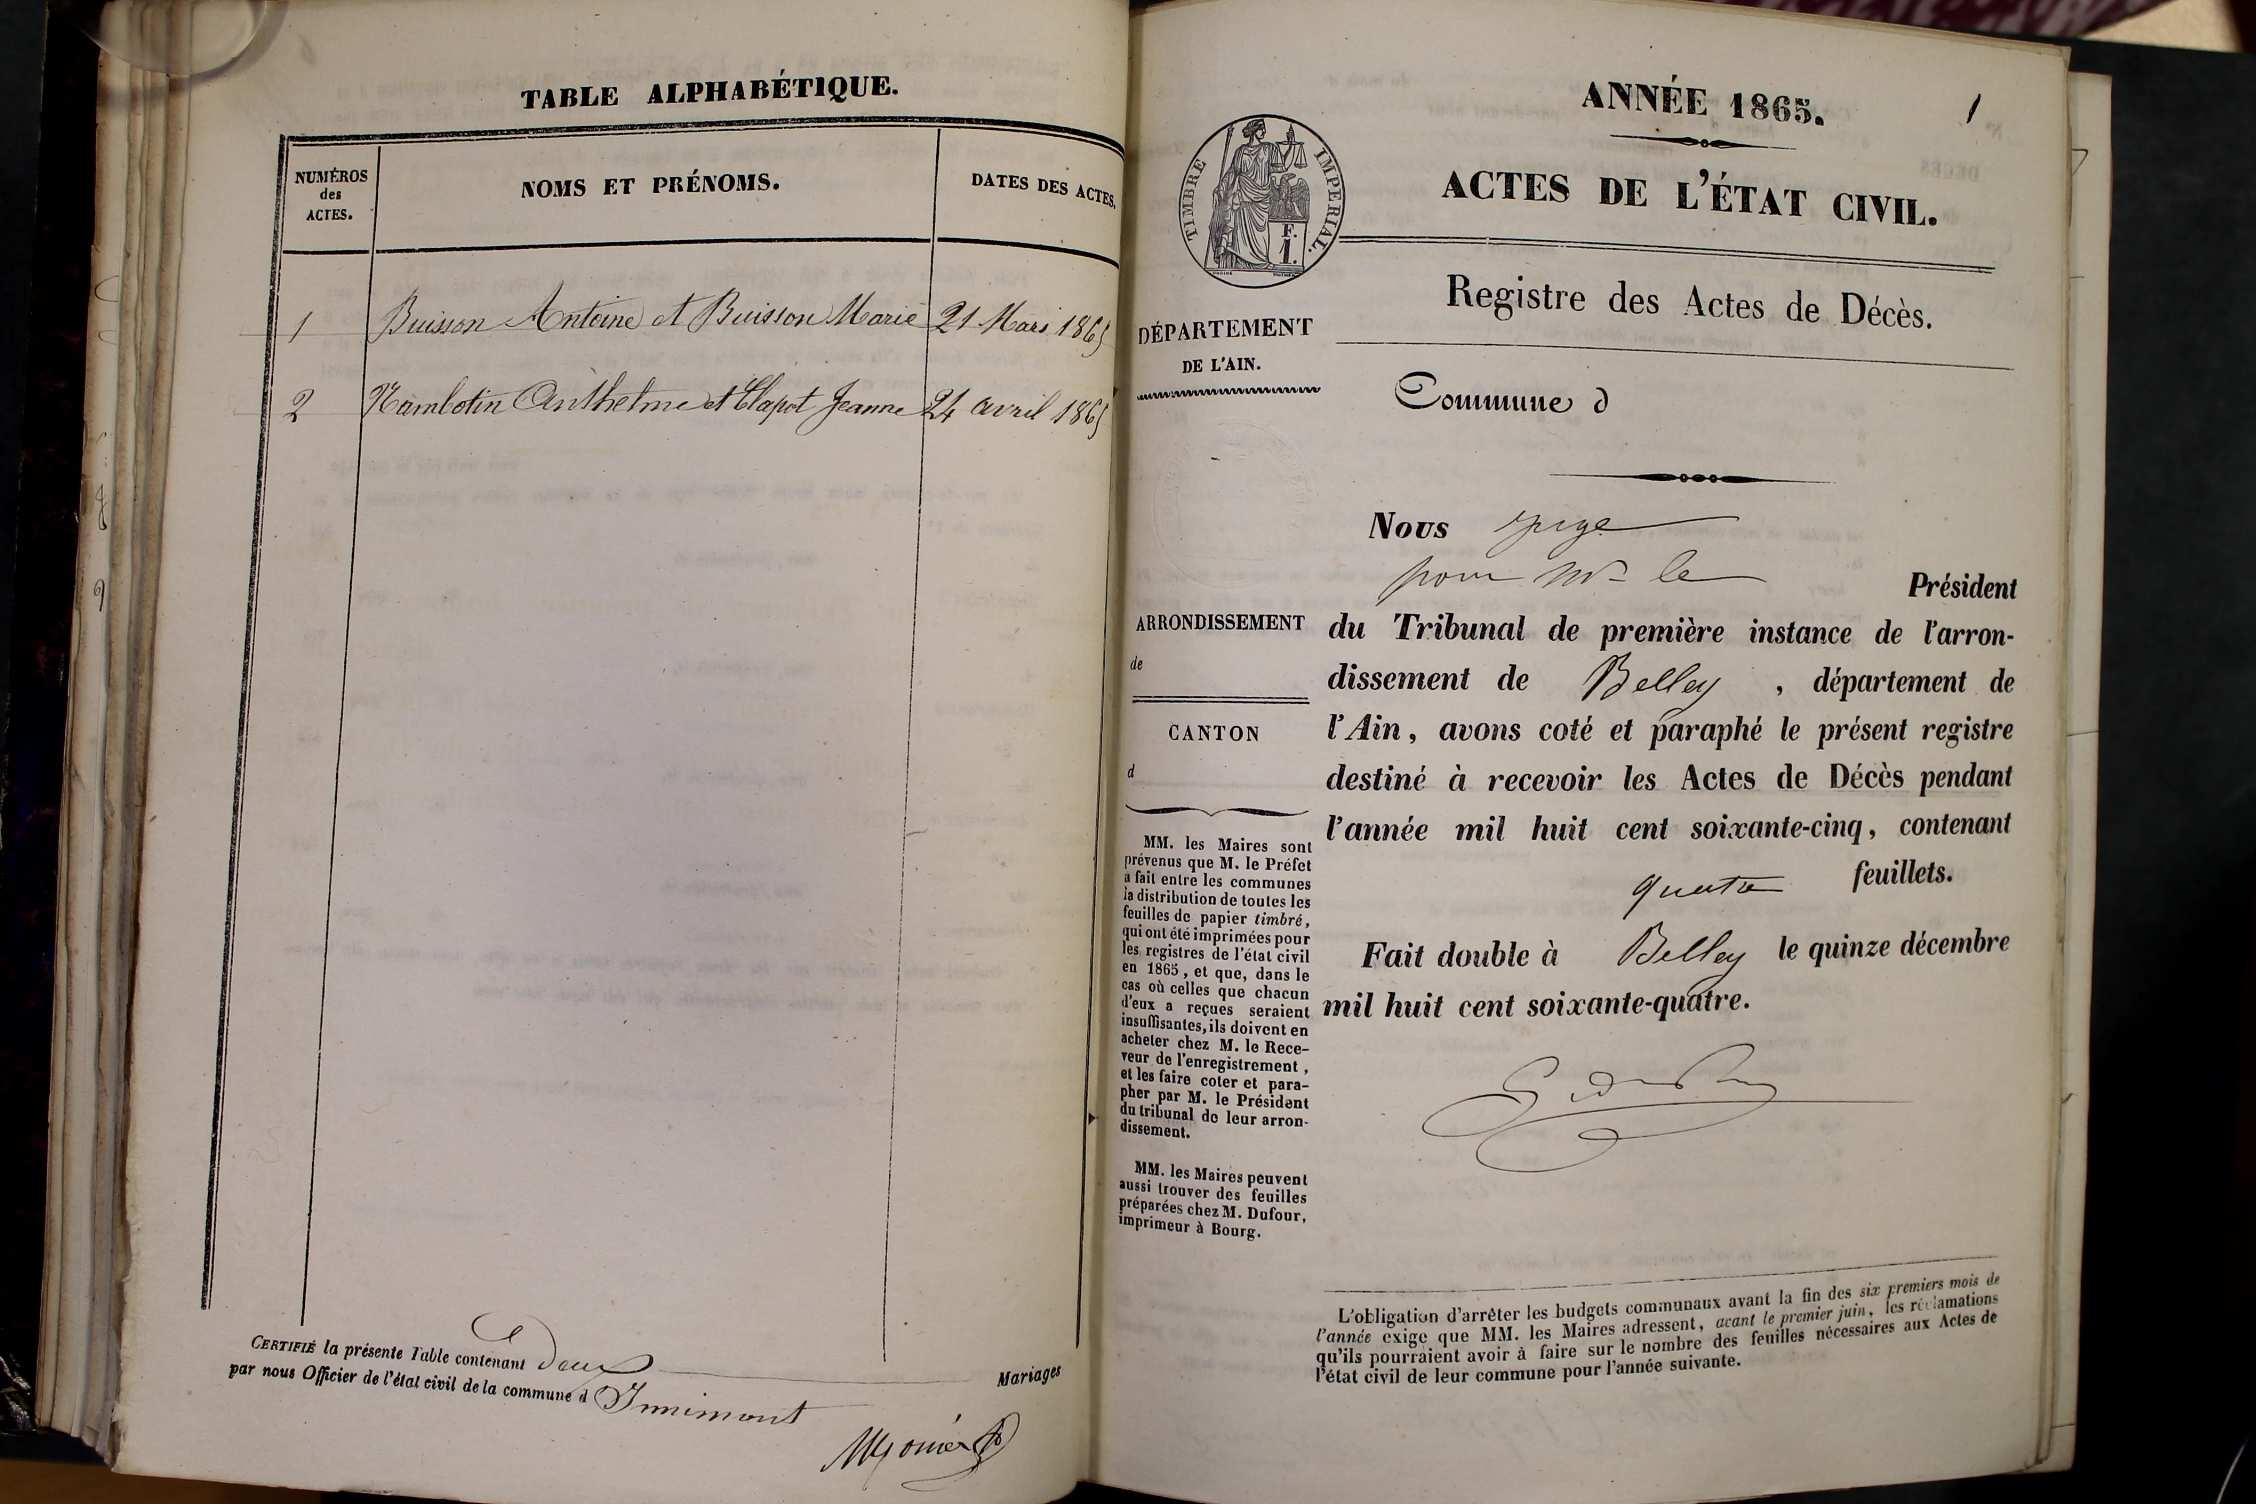 TABLE ALPHABÉTIQUE.
NUMÉROS
des
ACTES.
NOMS ET PRÉNOMS.
DATES DES ACTES.
1 Buisson Antoine et Buisson Marie 21 Mars 1865
2 Nambotin Anthelme et Clapot Jeanne 24 avril 1865
CERTIFIÉ la présente Table contenant deux Mariages
par nous Officier de l'état civil de la commune d Innimont
ANNÉE 1865.
1
TIMBRE IMPERIAL.
F.
1.
ACTES DE L'ÉTAT CIVIL.
Registre des Actes de Décès.
DÉPARTEMENT
DE L'AIN.
Commune d
Nous juge
pour Mr le
Président
ARRONDISSEMENT
de
CANTON
d
du Tribunal de première instance de l'arron-
dissement de Belley, département de
l'Ain, avons coté et paraphé le présent registre
destiné à recevoir les Actes de Décès pendant
l'année mil huit cent soixante-cinq, contenant
quatre feuillets.
Fait double à Belley le quinze décembre
mil huit cent soixante-quatre.
MM. les Maires sont
prévenus que M. le Préfet
a fait entre les communes
la distribution de toutes les
feuilles de papier timbré,
qui ont été imprimées pour
les registres de l'état civil
en 1865, et que, dans le
cas où celles que chacun
d'eux a reçues seraient
insuffisantes, ils doivent en
acheter chez M. le Rece-
veur de l'enregistrement,
et les faire coter et para-
pher par M. le Président
du tribunal de leur arron-
dissement.
MM. les Maires peuvent
aussi trouver des feuilles
préparées chez M. Dufour,
imprimeur à Bourg.
L'obligation d'arrêter les budgets communaux avant la fin des six premiers mois de
l'année exige que MM. les Maires adressent, avant le premier juin, les réclamations
qu'ils pourraient avoir à faire sur le nombre des feuilles nécessaires aux Actes de
l'état civil de leur commune pour l'année suivante.